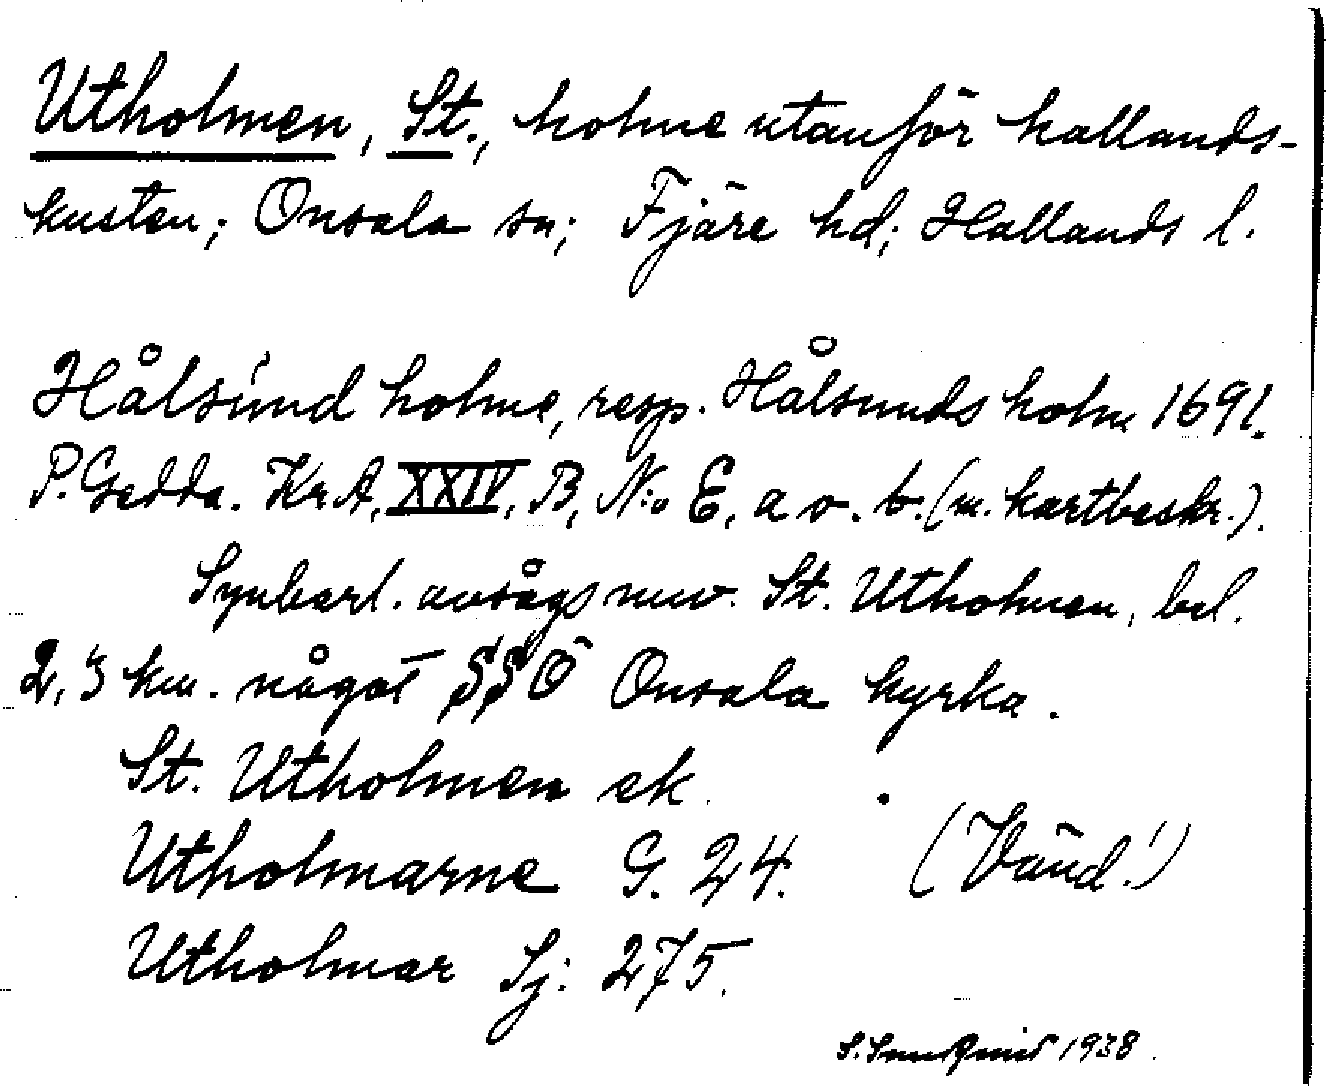 Utholmen, St., holme utanför hallands-
kusten; Onsala sn; Fjäre hd; Hallands l.
Hålsund holme, resp. Hålsunds holm 1691.
P. Gedda. Kr.A, XXIV, B, N:o E, a o. b. (m. kartbeskr.).
Synbarl. avsågs nuv. St. Utholmen, bel.
2,3 km. något SSÖ Onsala kyrka.
St. Utholmen ek.
Utholmarne G. 24.
(Vänd!)
Utholmar Sj: 275.
1938